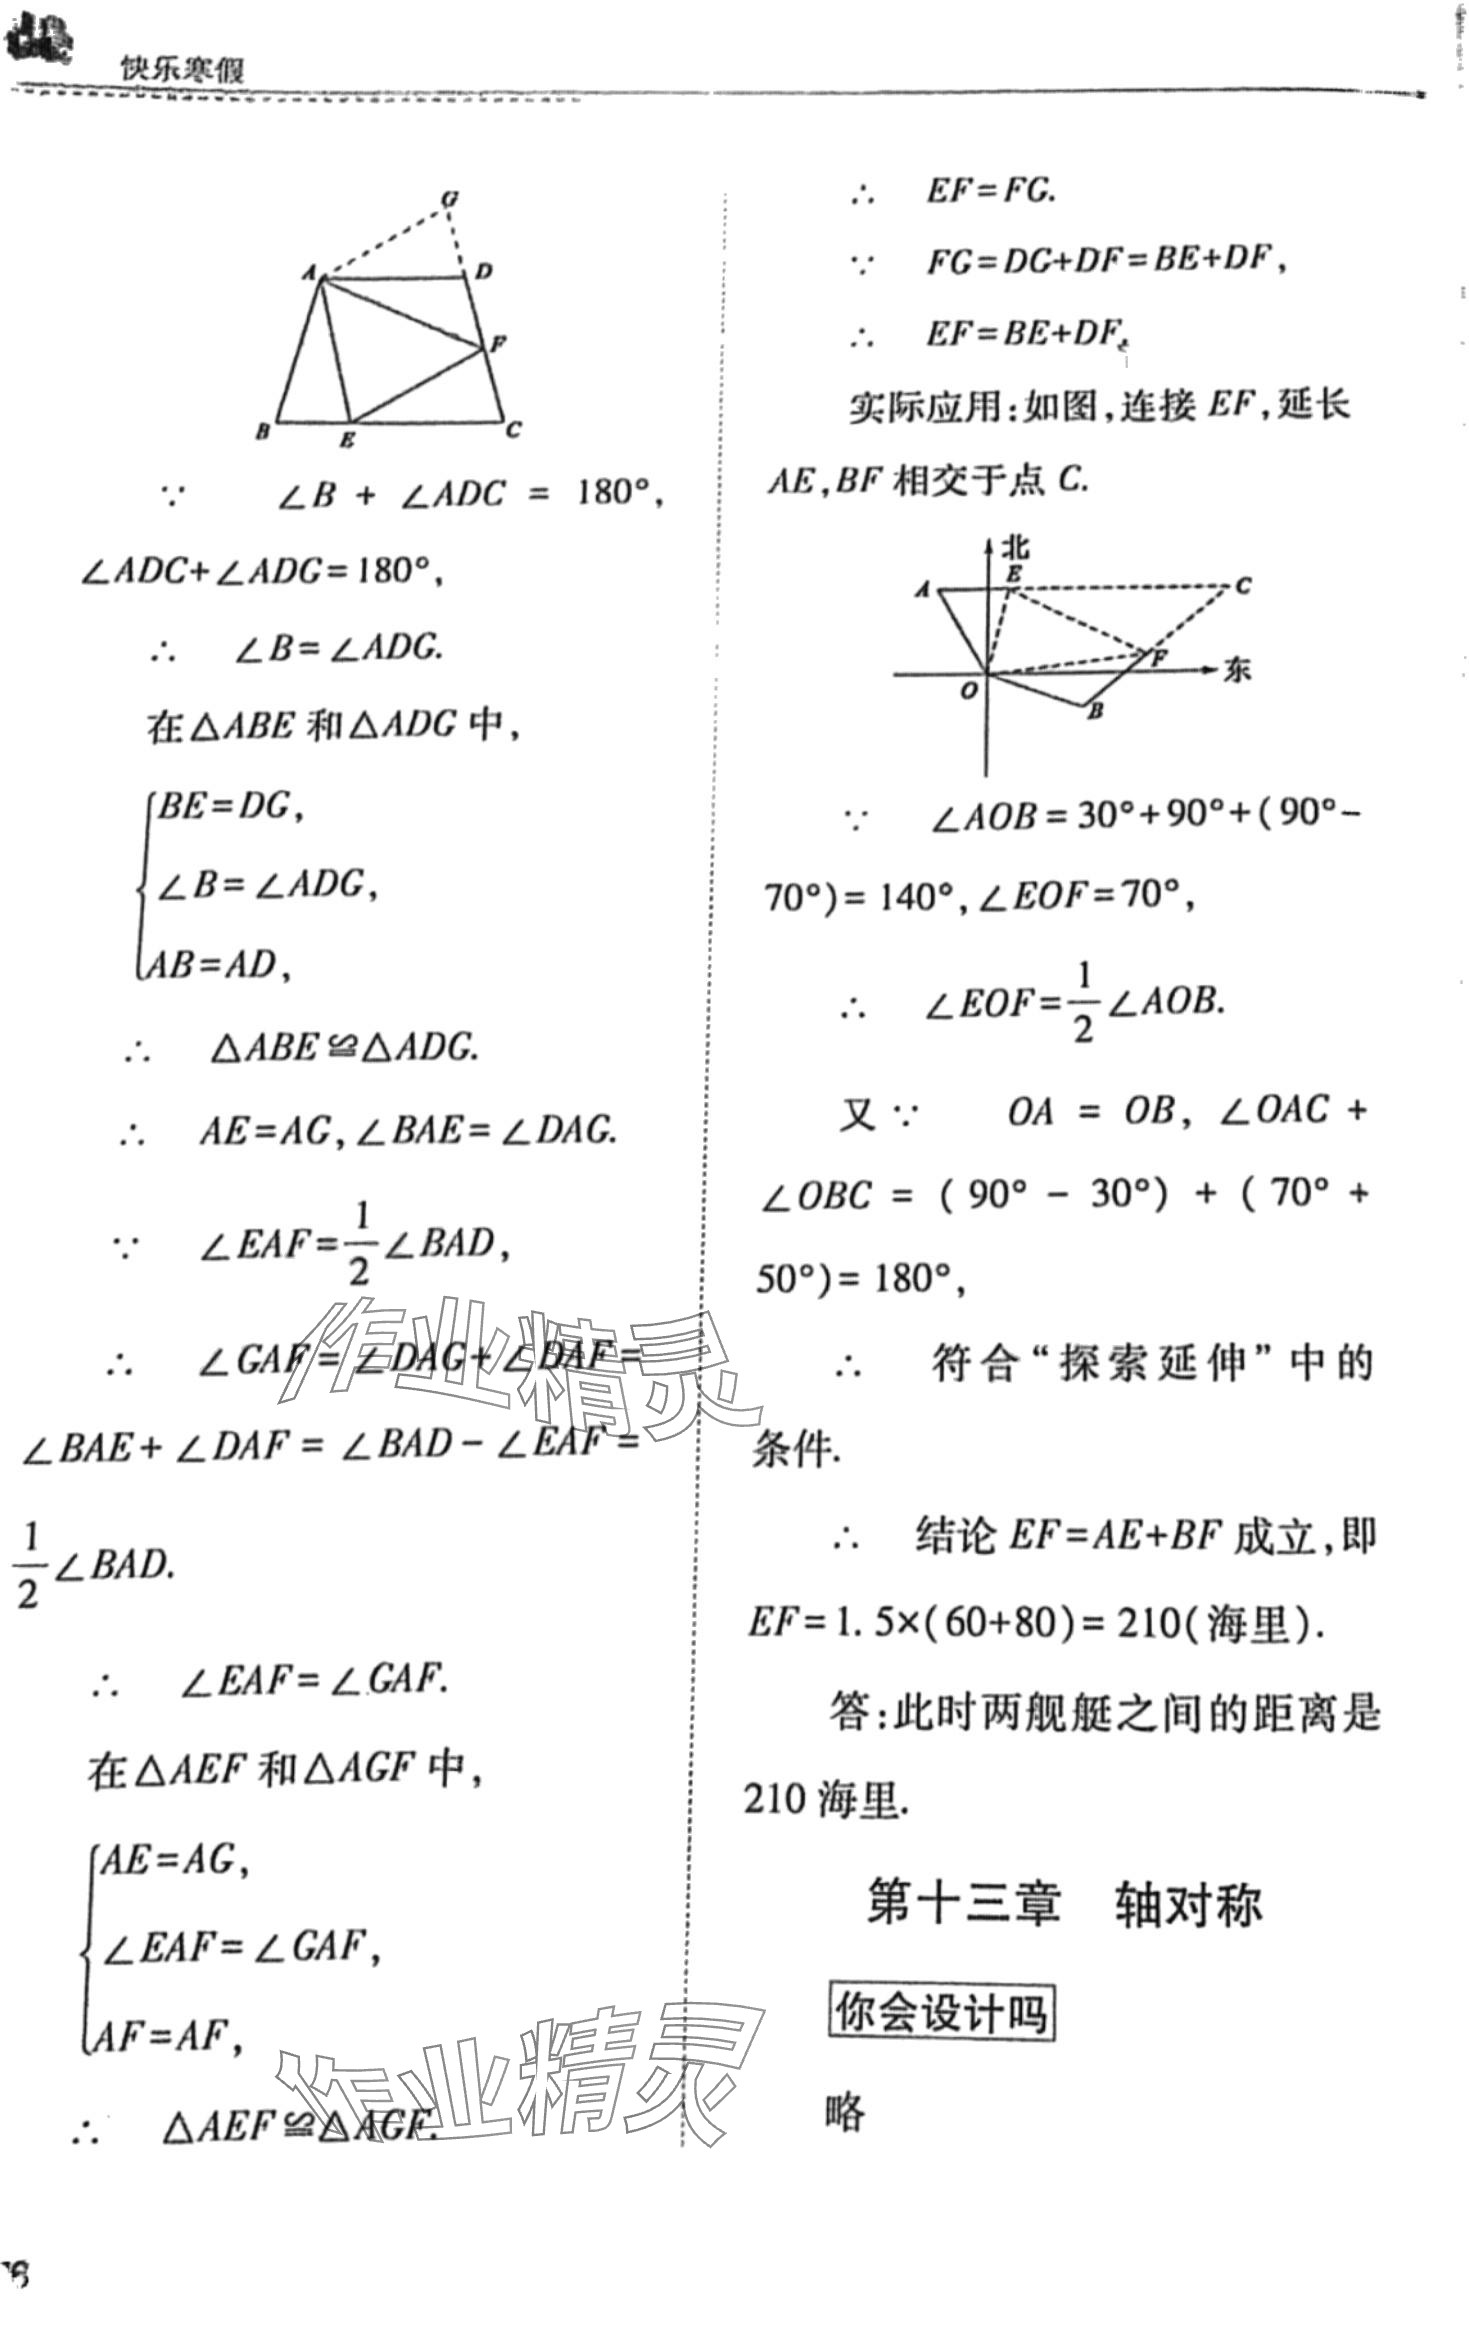 快乐寒假
G
A
D
F
B
E
C
∵ ∠B + ∠ADC = 180°,
∠ADC+∠ADG=180°,
∴ ∠B=∠ADG.
在△ABE 和△ADG 中,
BE=DG,
∠B=∠ADG,
AB=AD,
∴ △ABE≌△ADG.
∴ AE=AG,∠BAE=∠DAG.
∵ ∠EAF=1/2∠BAD,
∴ ∠GAF=∠DAG+∠DAF=
∠BAE+∠DAF=∠BAD-∠EAF=
1/2∠BAD.
∴ ∠EAF=∠GAF.
在△AEF 和△AGF 中,
AE=AG,
∠EAF=∠GAF,
AF=AF,
∴ △AEF≌△AGF.
∴ EF=FG.
∵ FG=DG+DF=BE+DF,
∴ EF=BE+DF.
实际应用:如图,连接 EF,延长
AE,BF 相交于点 C.
北
A
E
C
F
东
O
B
∵ ∠AOB=30°+90°+(90°-
70°)=140°,∠EOF=70°,
∴ ∠EOF=1/2∠AOB.
又∵ OA = OB, ∠OAC +
∠OBC = (90° - 30°) + (70° +
50°)=180°,
∴ 符合“探索延伸”中的
条件.
∴ 结论 EF=AE+BF 成立,即
EF=1.5×(60+80)=210(海里).
答:此时两舰艇之间的距离是
210 海里.
第十三章 轴对称
你会设计吗
略
作业精灵
作业精灵